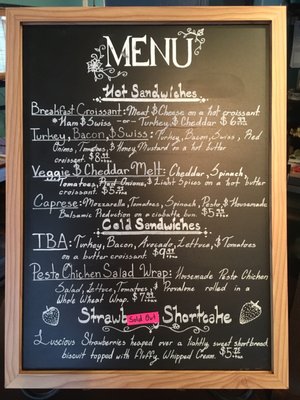 MENU
Hot Sandwiches
Breakfast Croissant: Meat & Cheese on a hot croissant
*Ham & Swiss -or- Turkey & Cheddar $6.99
Turkey, Bacon, & Swiss: Turkey, Bacon, Swiss, Red
Onions, Tomatoes, & Honey Mustard on a hot butter
croissant. $8.99
Veggie & Cheddar Melt: Cheddar, Spinach,
Tomatoes, Onions, & Light Spices on a hot butter
croissant. $5.
Caprese: Mozzarella, Tomatoes, Spinach, Pesto & Housemade
Balsamic Reduction on a ciabatta bun. $5.
Cold Sandwiches
TBA: Turkey, Bacon, Avocado, Lettuce, & Tomatoes
on a butter croissant. $9.
Pesto Chicken Salad Wrap: Housemade Pesto Chicken
Salad, Lettuce, Tomatoes, & Provalone rolled in a
Whole Wheat Wrap. $7.
Straw Sold Out Shortcake
Luscious Strawberries heaped over a lightly sweet shortbread
biscuit topped with Fluffy Whipped Cream. $5.